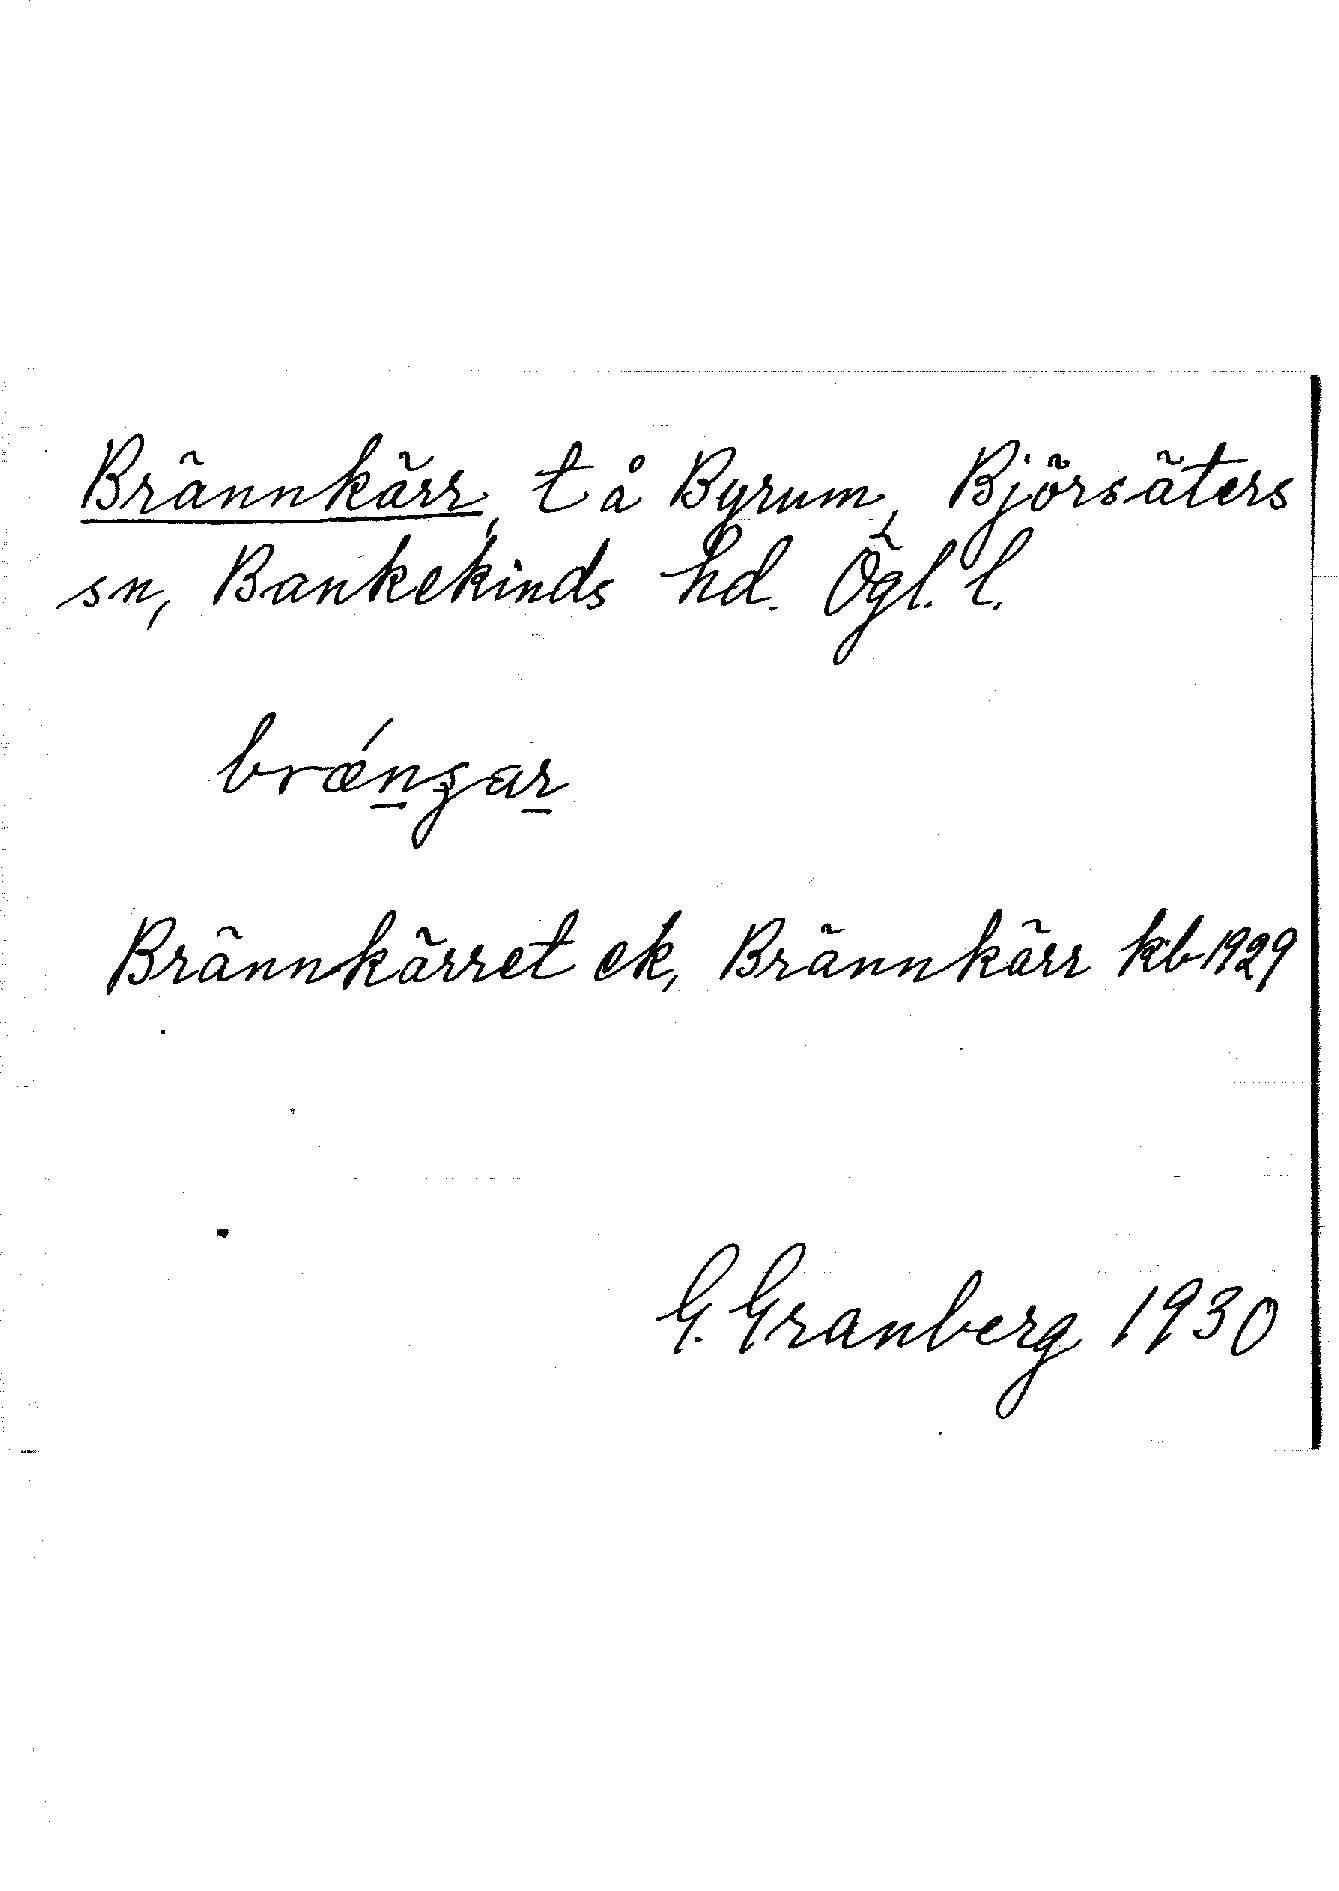 Brännkärr, t å Byrum, Björsäters
sn, Bankekinds hd. Ögl. l.
Brännkärret ek, Brännkärr kb 1929
G. Granberg 1930